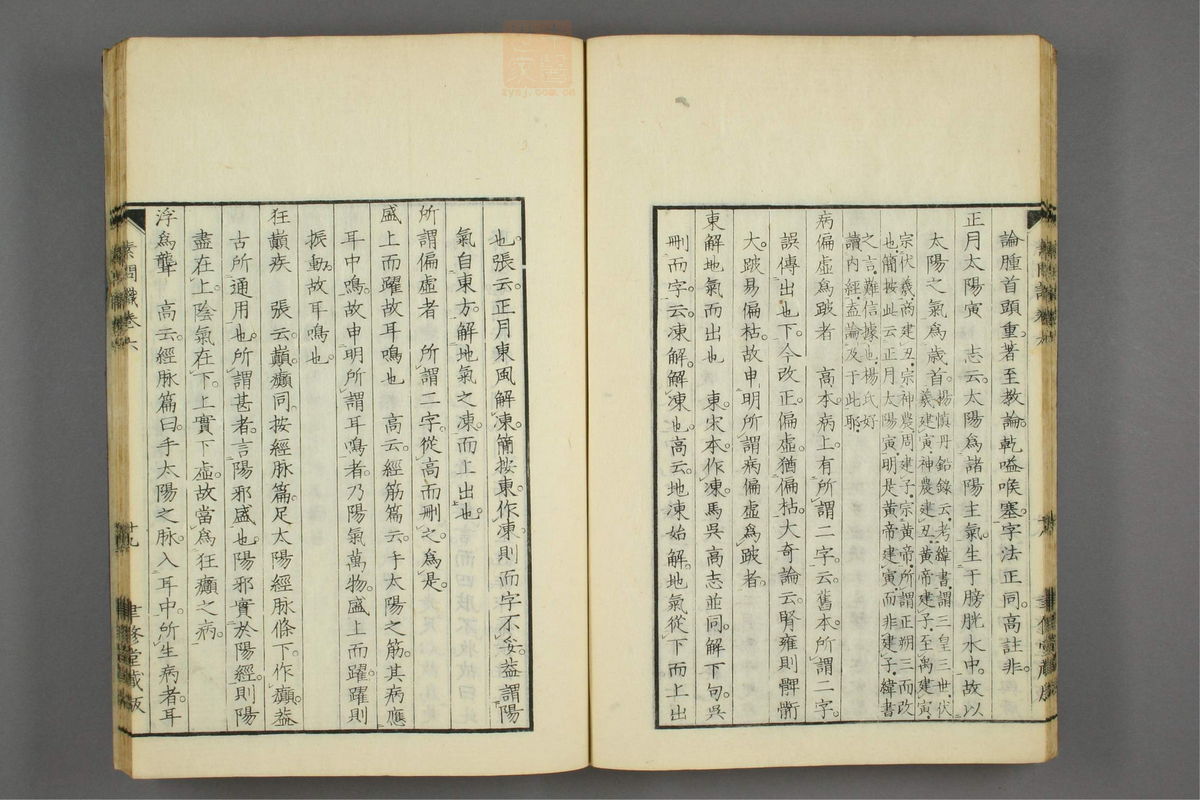 論腫首頭重著至教論乾嗌喉塞字法正同高註非
正月太陽寅　志云太陽爲諸陽主氣生于膀胱水中故以
太陽之氣爲歲首楊慎丹鉛錄云考緯書謂三皇三世伏
羲建寅神農建丑黃帝建子至禹建寅
宗伏羲商建丑宗神農周建子宗黃帝所謂正朔三而改
也簡按此云正月太陽寅明是黃帝建寅而非建子緯書
之言難信據也楊氏好
讀内經盍論及于此耶
病偏虛爲跛者　高本病上有所謂二字云舊本所謂二字
誤傳出也下今改正偏虛猶偏枯大奇論云腎雍則髀䯒
大跛易偏枯故申明所謂病偏虛爲跛者
東解地氣而出也　東宋本作凍馬吳高志並同解下句吳
刪而字云凍解解凍也高云地凍始解地氣從下而上出
也張云正月東風解凍簡按東作凍則而字不妥蓋謂陽
氣自東方解地氣之凍而上出也
所謂偏虛者　所謂二字從高而刪之爲是
盛上而躍故耳鳴也　高云經筋篇云手太陽之筋其病應
耳中鳴故申明所謂耳鳴者乃陽氣萬物盛上而躍躍則
振動故耳鳴也
狂巔疾　張云巔癲同按經脉篇足太陽經脉條下作癲蓋
古所通用也所謂甚者言陽邪盛也陽邪實於陽經則陽
盡在上陰氣在下上實下虛故當爲狂癲之病
浮爲聾　高云經脉篇曰手太陽之脉入耳中所生病者耳
素問識卷六
廿九
聿修堂藏版